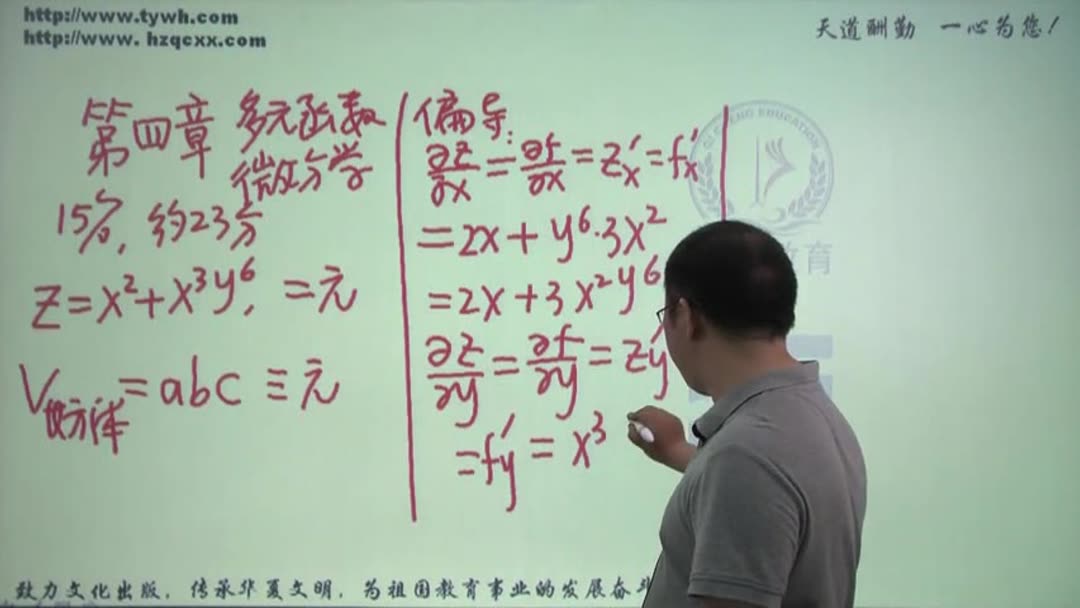 http://www.tywh.com
http://www.hzqcxx.com
天道酬勤 一心为您!
第四章 多元函数
微分学
15%, 约23分
z=x²+x³y⁶, 二元
V长方体=abc 三元
偏导:
∂z/∂x=∂f/∂x=z'x=f'x
=2x+y⁶·3x²
=2x+3x²y⁶
∂z/∂y=∂f/∂y=z'y
=f'y=x³
EDUCATION
教育
致力文化出版,传承华夏文明,为祖国教育事业的发展奋斗